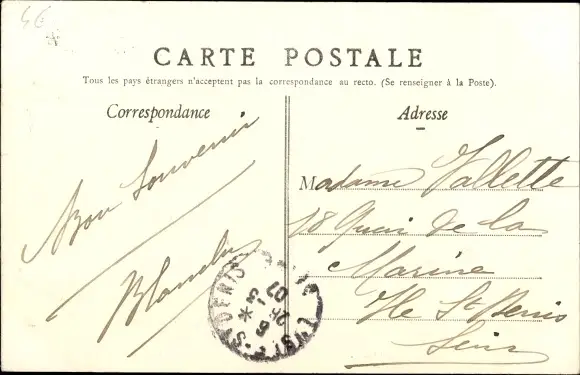 CARTE POSTALE
Tous les pays étrangers n'acceptent pas la correspondance au recto. (Se renseigner à la Poste).
Correspondance
Adresse
Bon Souvenir
Blanche
Madame Vallette
18 Quai de la
Marine
Ile St Denis
Seine